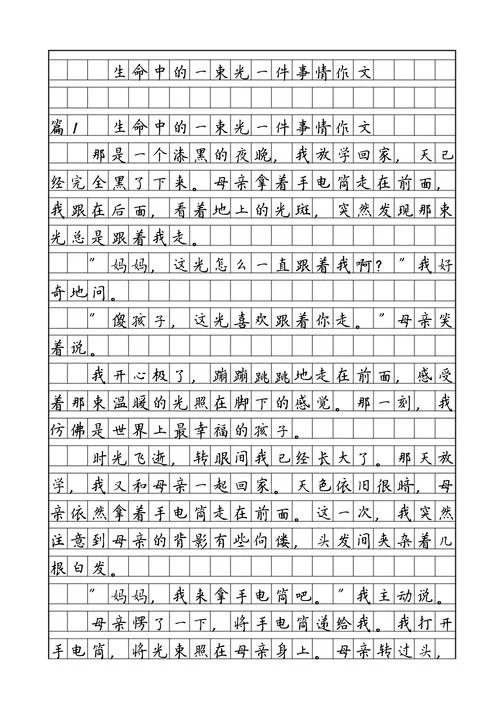 生命中的一束光一件事情作文
篇1 生命中的一束光一件事情作文
那是一个漆黑的夜晚，我放学回家，天已
经完全黑了下来。母亲拿着手电筒走在前面，
我跟在后面，看着地上的光斑，突然发现那束
光总是跟着我走。
”妈妈，这光怎么一直跟着我啊？”我好
奇地问。
”傻孩子，这光喜欢跟着你走。”母亲笑
着说。
我开心极了，蹦蹦跳跳地走在前面，感受
着那束温暖的光照在脚下的感觉。那一刻，我
仿佛是世界上最幸福的孩子。
时光飞逝，转眼间我已经长大了。那天放
学，我又和母亲一起回家。天色依旧很暗，母
亲依然拿着手电筒走在前面。这一次，我突然
注意到母亲的背影有些佝偻，头发间夹杂着几
根白发。
”妈妈，我来拿手电筒吧。”我主动说。
母亲愣了一下，将手电筒递给我。我打开
手电筒，将光束照在母亲身上。母亲转过头，